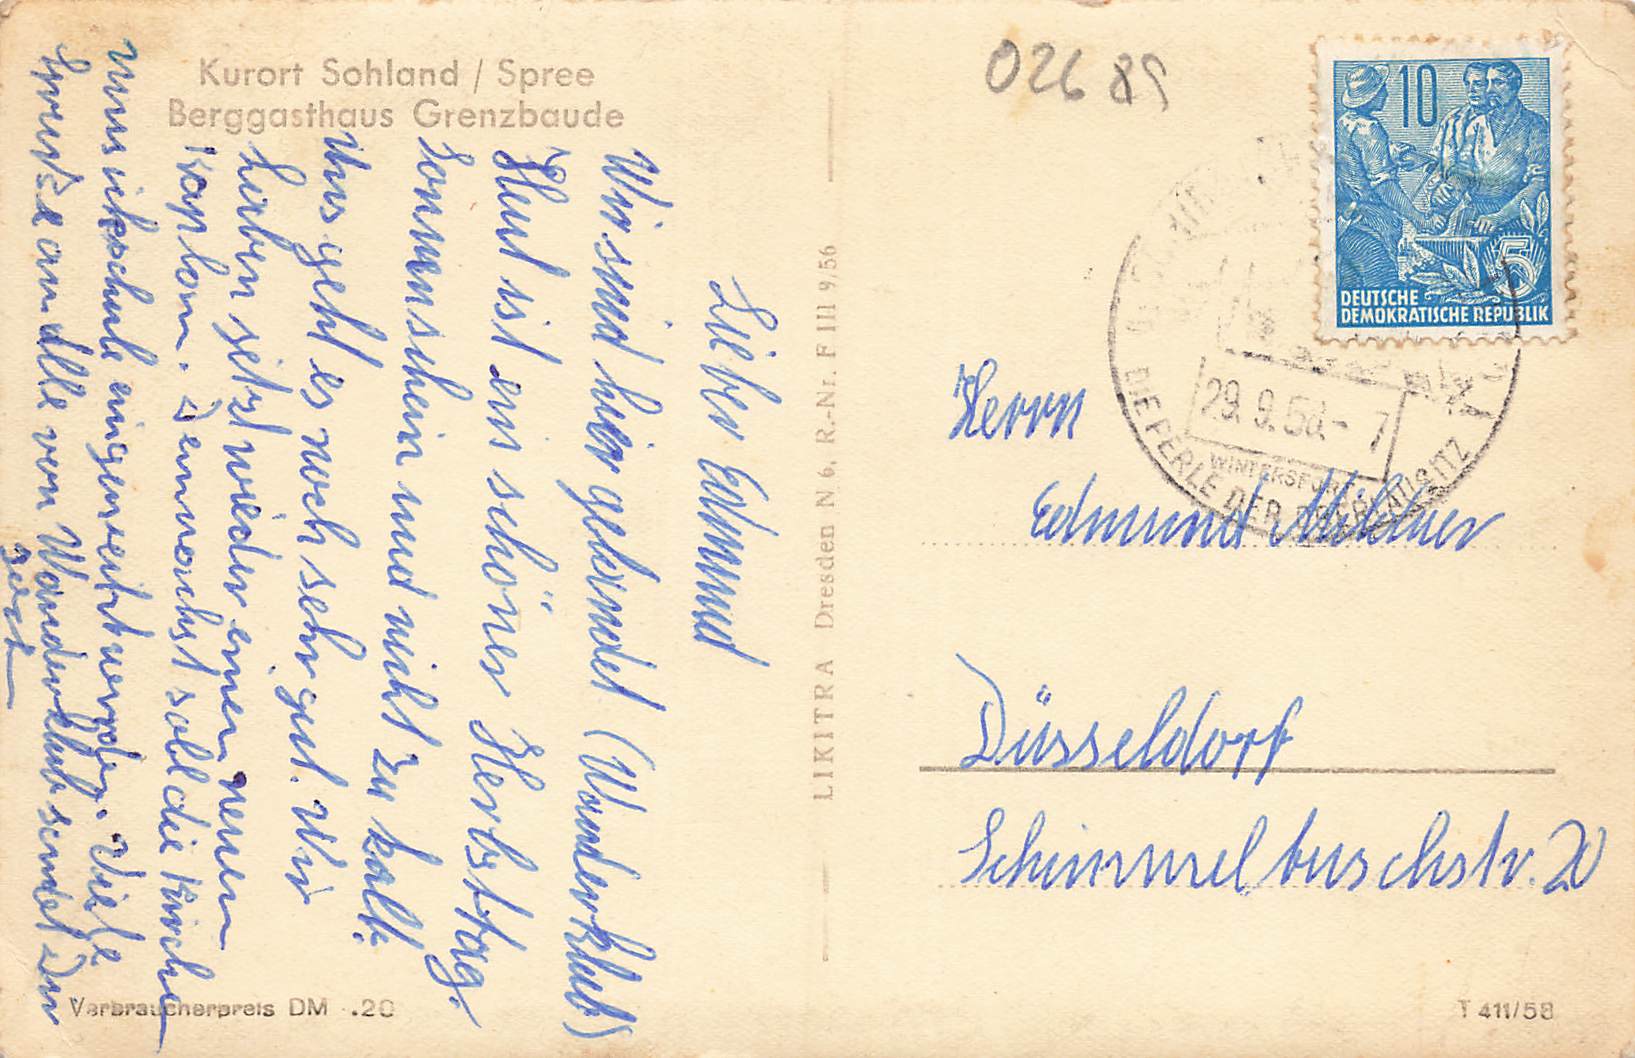 Kurort Sohland / Spree
Berggasthaus Grenzbaude
Lieber Edmund
Wir sind hier gelandet (Wanderklub)
Heut ist ein schöner Herbsttag.
Sonnenschein und nicht zu kalt.
Uns geht es noch sehr gut. Wir
haben jetzt wieder einen neuen
Kaplan. Demnächst soll die Kirche
eingeweiht werden. Viele
Grüße an alle vom Wanderklub sendet Dir
LIKITRA Dresden N 6, R.-Nr. F III 9/56
02689
10
5
DEUTSCHE
DEMOKRATISCHE REPUBLIK
29.9.58.- 7
WINTERSPORT
DIE PERLE DER OBERLAUSITZ
Herrn
Edmund Mildner
Düsseldorf
Schimmelbuschstr. 20
Verbraucherpreis DM -.20
T 411/58